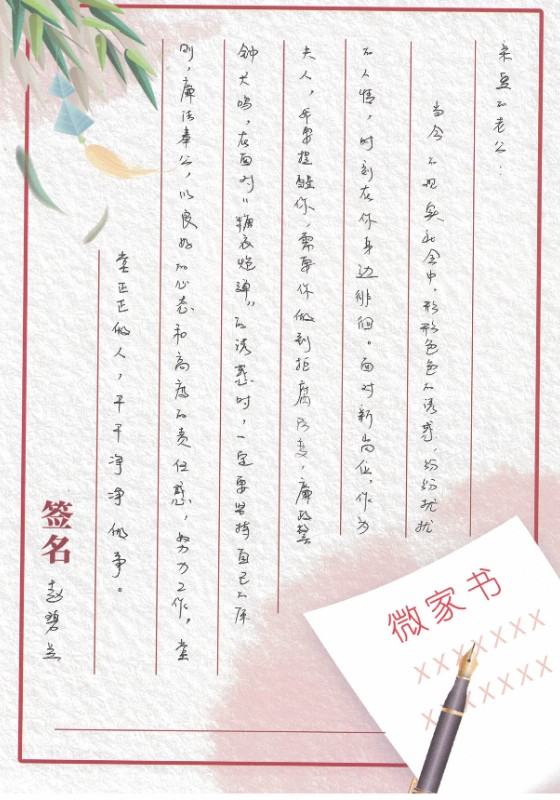 亲爱的老公：
当今的现实社会中，形形色色的诱惑，纷纷扰扰
的人情，时刻在你身边徘徊。面对新岗位，作为
夫人，我要提醒你，需要你做到拒腐防变，廉政警
钟长鸣，在面对“糖衣炮弹”的诱惑时，一定要坚持自己的原
则，廉洁奉公，以良好的心态和高度的责任感，努力工作，堂
堂正正做人，干干净净做事。
签名 赵碧兰
微家书
XXXXXXX
XXXXXXX